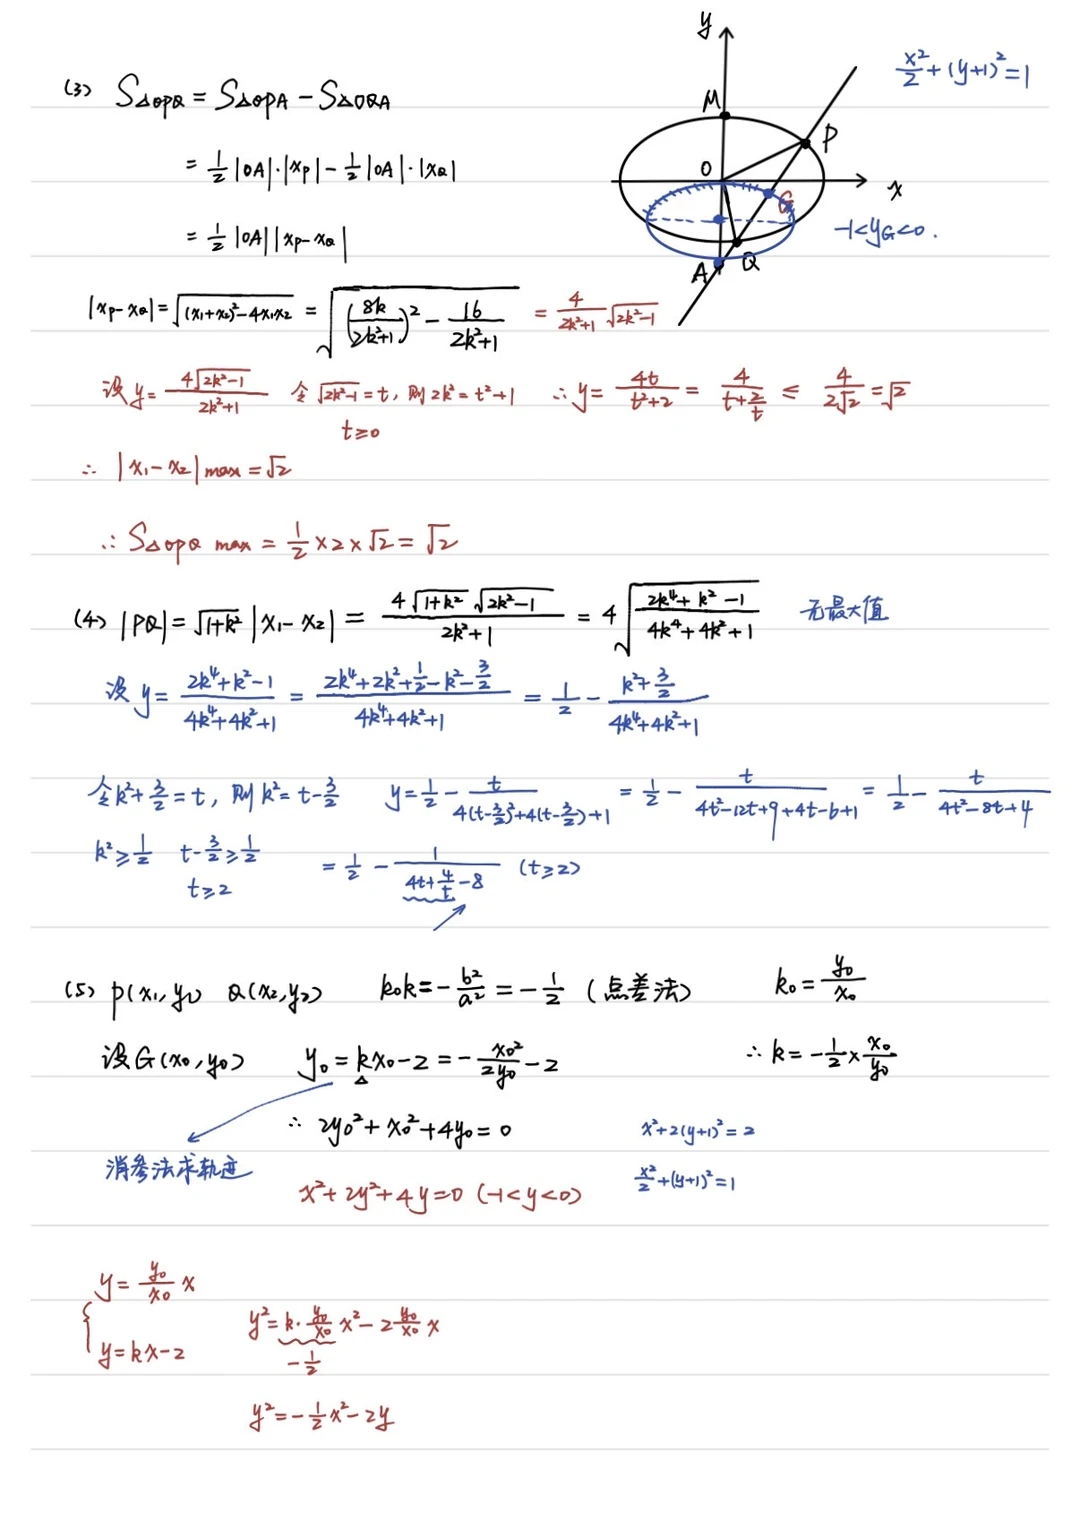 (3) S△OPQ = S△OPA − S△OQA
= 1/2 |OA|·|xP| − 1/2 |OA|·|xQ|
= 1/2 |OA| |xP − xQ|
y
x²/2 + (y+1)² = 1
M
P
O
x
G
−1<yG<0.
A
Q
|xP − xQ| = √((x₁+x₂)² − 4x₁x₂) = √((8k/(2k²+1))² − 16/(2k²+1)) = 4/(2k²+1) √(2k²−1)
设 y = 4√(2k²−1)/(2k²+1) 令 √(2k²−1) = t, 则 2k² = t²+1 ∴ y = 4t/(t²+2) = 4/(t+2/t) ≤ 4/(2√2) = √2
t≥0
∴ |x₁ − x₂| max = √2
∴ S△OPQ max = 1/2 × 2 × √2 = √2
(4) |PQ| = √(1+k²) |x₁ − x₂| = 4√(1+k²) √(2k²−1)/(2k²+1) = 4 √((2k⁴+k²−1)/(4k⁴+4k²+1)) 无最大值
设 y = (2k⁴+k²−1)/(4k⁴+4k²+1) = (2k⁴+2k²+1/2−k²−3/2)/(4k⁴+4k²+1) = 1/2 − (k²+3/2)/(4k⁴+4k²+1)
令 k²+3/2 = t, 则 k² = t−3/2 y = 1/2 − t/(4(t−3/2)²+4(t−3/2)+1) = 1/2 − t/(4t²−12t+9+4t−6+1) = 1/2 − t/(4t²−8t+4)
k² ≥ 1/2 t−3/2 ≥ 1/2 = 1/2 − 1/(4t+4/t−8) (t≥2)
t≥2
(5) P(x₁,y₁) Q(x₂,y₂) k₀k = −b²/a² = −1/2 (点差法) k₀ = y₀/x₀
设 G(x₀,y₀) y₀ = kx₀−2 = −x₀²/2y₀ − 2 ∴ k = −1/2 × x₀/y₀
∴ 2y₀² + x₀² + 4y₀ = 0 x²+2(y+1)² = 2
消参法求轨迹 x²+2y²+4y=0 (−1<y<0) x²/2 + (y+1)² = 1
{ y = y₀/x₀ x
y = kx−2
y² = k·y₀/x₀ x² − 2 y₀/x₀ x
−1/2
y² = −1/2 x² − 2y